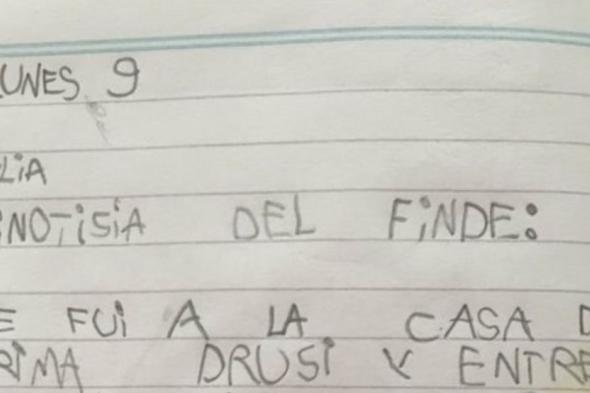 UNES 9
LiA
NOTiSiA DEL FiNDE:
E FUi A LA CASA D
RiMA DRUSi Y ENTRE